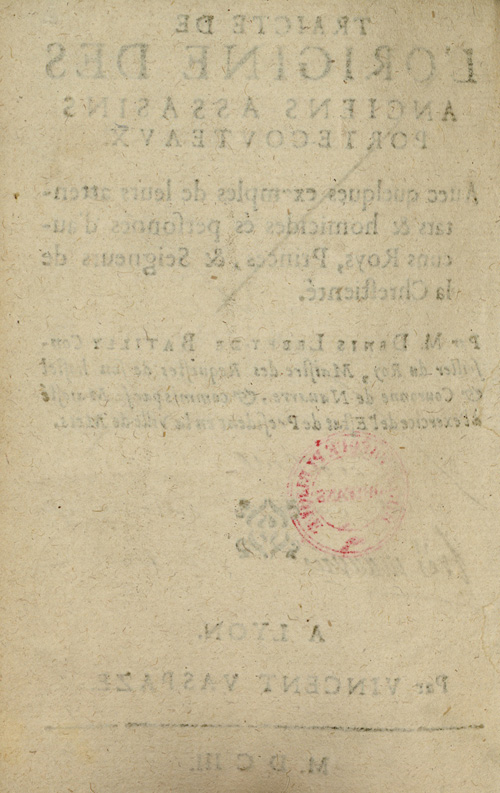 TRAICTE DE
L'ORIGINE DES
ANCIENS ASSASINS
PORTECOVTEAVX.
Auec quelques exemples de leurs atten-
tats & homicides és personnes d'au-
cuns Roys, Princes, & Seigneurs de
la Chrestienté.
Par M. DENIS LEBEY DE BATILLY Con-
seiller du Roy, Maistre des Requestes de son hostel
& Couronne de Nauarre, & commis par sa Maiesté
à l'exercice de l'Estat de President en la ville de Mets.
A LYON.
Par VINCENT VASPAZE
M. D C III.